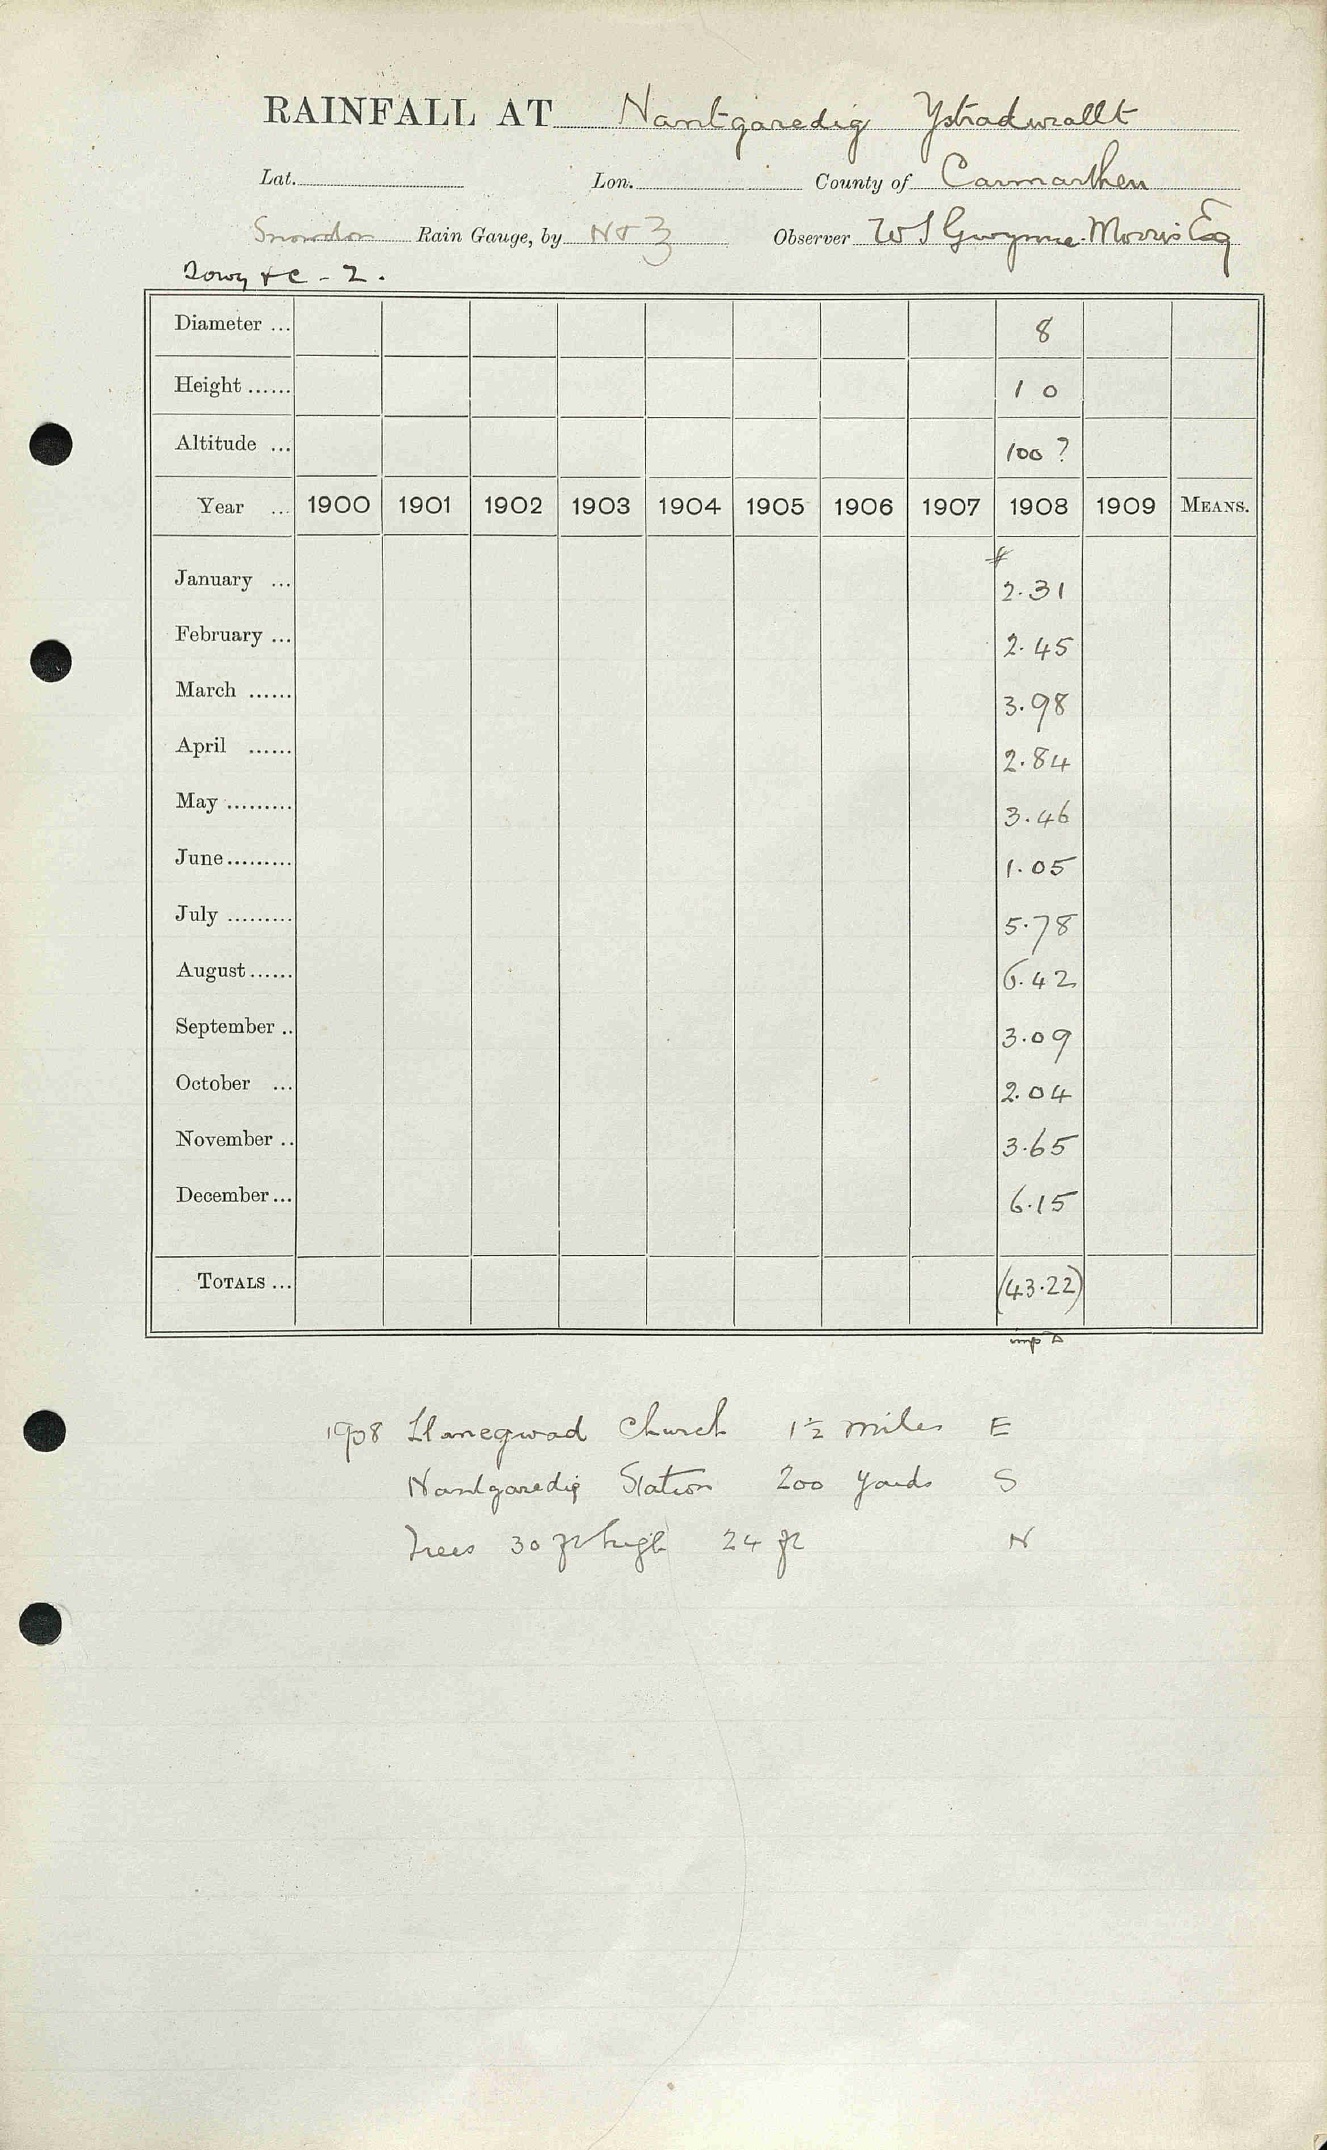 RAINFALL AT Nantgaredig Ystradwrallt
Lat. Lon. County of Carmarthen
Snowdon Rain Gauge, by N & Z Observer W S Gwynne-Morris Esq
Towy &c - 2.
Diameter ... 8
Height ...... 1 0
Altitude ... 100 ?
Year ... 1900 1901 1902 1903 1904 1905 1906 1907 1908 1909 MEANS.
January ... 2.31
February ... 2.45
March ...... 3.98
April ...... 2.84
May ......... 3.46
June ......... 1.05
July ......... 5.78
August ...... 6.42
September .. 3.09
October ... 2.04
November .. 3.65
December ... 6.15
TOTALS ... (43.22)
1908 Llanegwad Church 1½ miles E
Nantgaredig Station 200 yards S
Trees 30 ft high 24 ft N